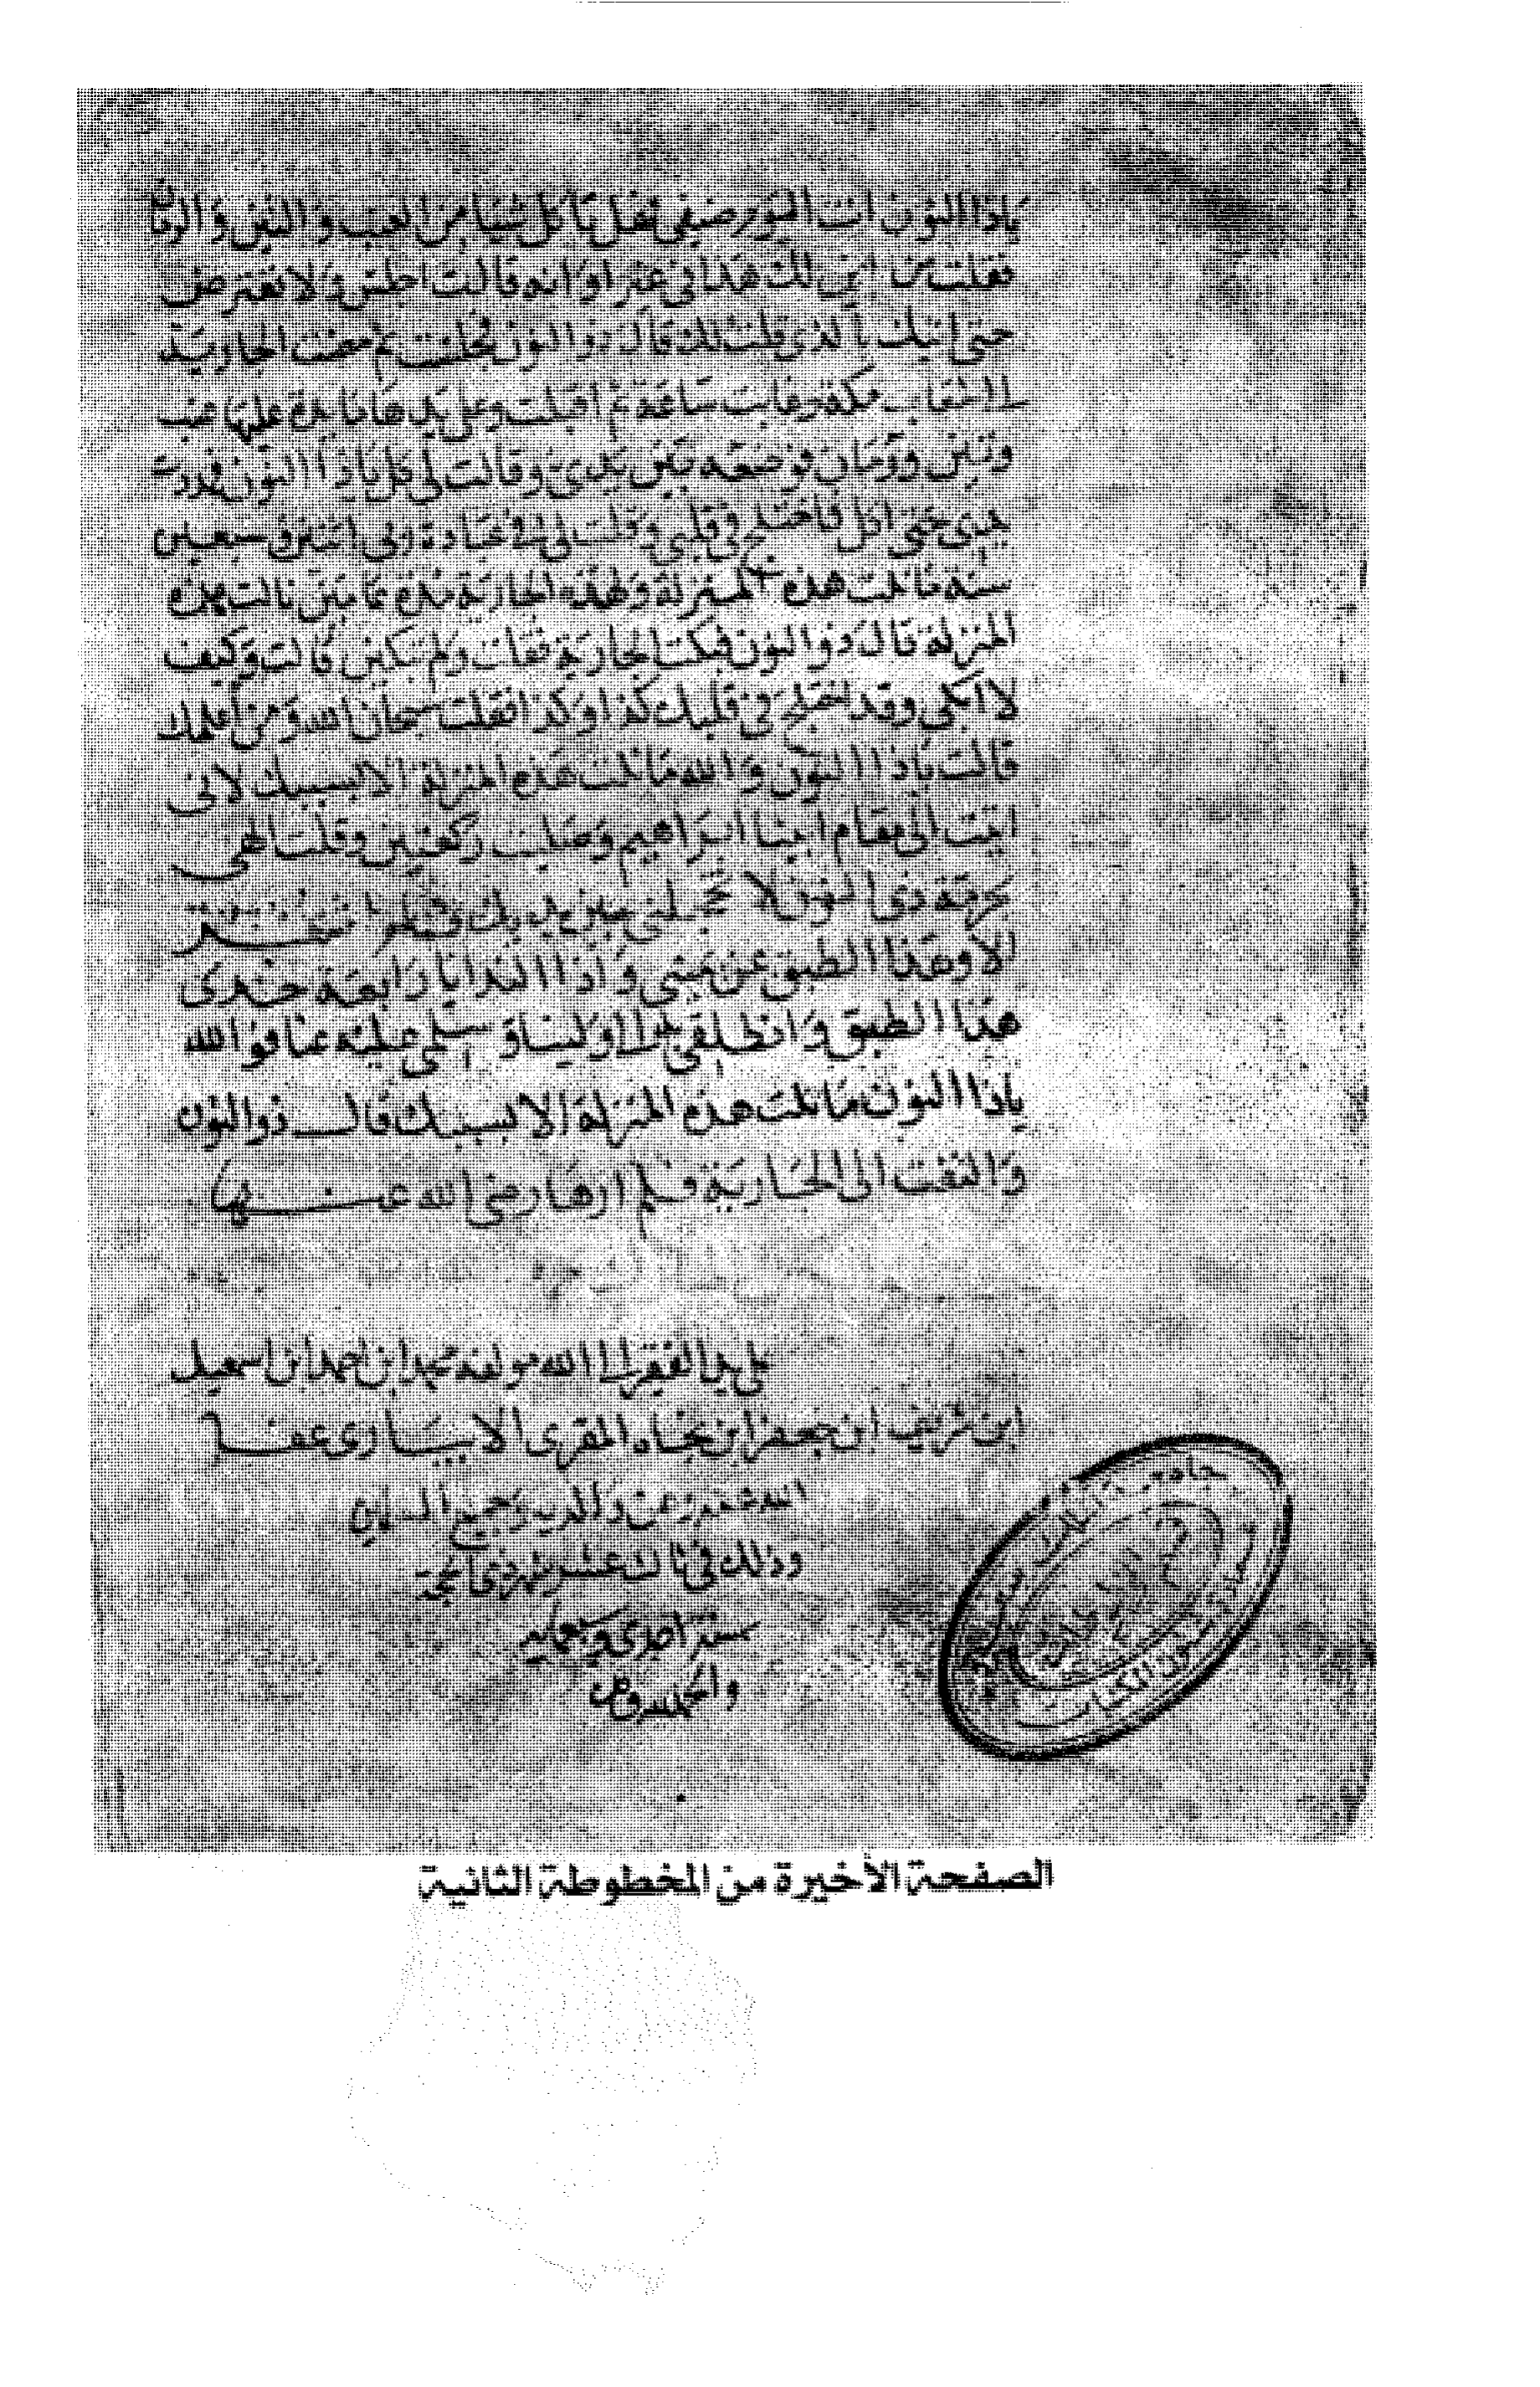 ياذا النون انت اليوم ضيفى فهل تاكل شيا من العنب والتين والرمان
فقلت من اين لك هذا فى غير اوانه قالت اجلس ولا تعترض
حتى اتيك بالذى قلت لك قال ذو النون فجلست ثم مضت الجارية
الى شعاب مكة وغابت ساعة ثم اقبلت وعلى يدها مايدة عليها عنب
وتين ورمان فوضعه بين يدى وقالت لى كل ياذا النون فمددت
يدى حتى اكل فاختلج فى قلبى وقلت لى فى عبادة ربى اثنين وسبعين
سنة ما نلت هذه المنزلة ولهذه الجارية مدة عامين نالت هذه
المنزلة قال ذو النون فبكت الجارية فقلت ولم تبكين قالت وكيف
لا ابكى وقد اختلج فى قلبك كذا وكذا فقلت سبحان الله ومن اعلمك
قالت ياذا النون والله ما نلت هذه المنزلة الا بسببك لانى
اتيت الى مقام ابينا ابراهيم وصليت ركعتين وقلت الهى
بحرمة ذى النون لا تخجلنى بين يديك فلم اشعر
الا وهذا الطبق عن يمينى واذا الندا يا رابعة خدى
هذا الطبق وانطلقى الى ولينا وسلمى عليه عنا فو الله
ياذا النون ما نلت هذه المنزلة الا بسببك قال ذو النون
والتفت الى الجارية فلم ارها رضى الله عنها
على يد الفقير الى الله مولفه محمد ابن احمد ابن اسمعيل
ابن شريف ابن جعفر ابن نجاد المقرى الابيارى عفا
الله عنه وعن والديه وجميع المسلمين
وذلك فى ثالث عشر شهر ذى الحجة
سنة احدى وسبعمايه
والحمد لله وحده
جامعة الملك سعود
عمادة شئون المكتبات
الصفحة الأخيرة من المخطوطة الثانية